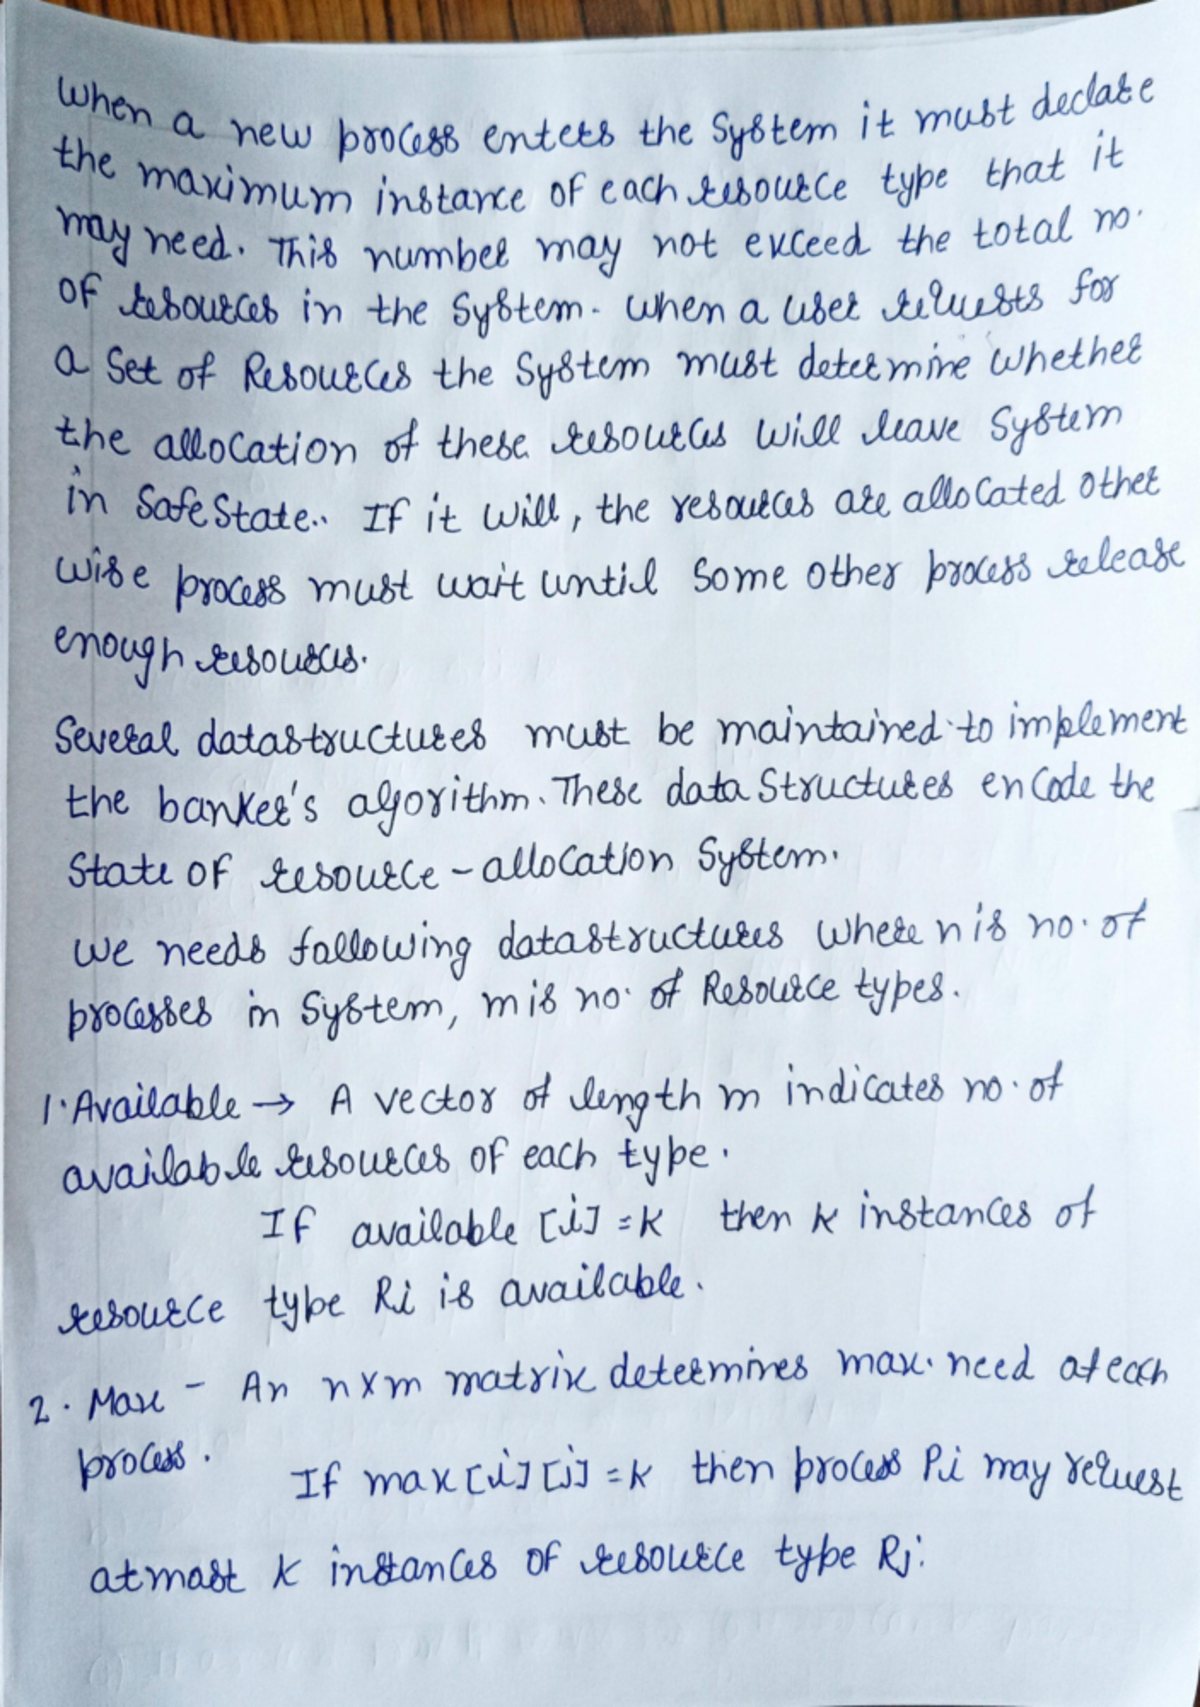 When a new process enters the System it must declare
the maximum instance of each resource type that it
may need. This number may not exceed the total no.
of resources in the System. When a user requests for
a Set of Resources the System must determine whether
the allocation of these resources will leave System
in Safe State.. If it will, the resources are allocated other
wise process must wait until Some other process release
enough resources.
Several datastructures must be maintained to implement
the banker's algorithm. These data Structures encode the
State of resource - allocation System.
We needs following datastructures where n is no. of
processes in System, m is no. of Resource types.
1. Available → A vector of length m indicates no. of
available resources of each type.
If available [i] = k then k instances of
resource type Ri is available.
2. Max - An n x m matrix determines max. need of each
process.
If max [i] [j] = k then process Pi may request
atmost k instances of resource type Rj.